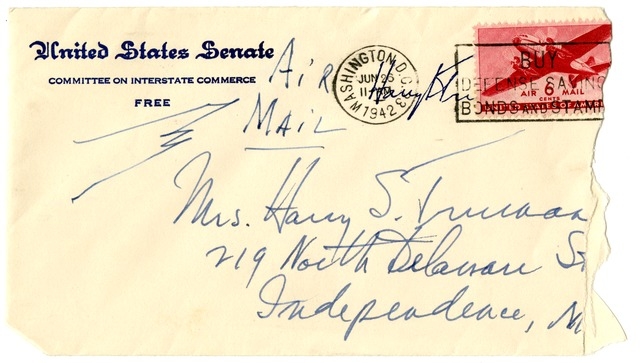 United States Senate
COMMITTEE ON INTERSTATE COMMERCE
FREE
Air
Mail
WASHINGTON, D.C.
JUN 26
11
1942
Harry S.
BUY
DEFENSE SAVINGS
BONDS AND STAMP
AIR 6 MAIL
CENTS
Mrs. Harry S. Truman
219 North Delaware St
Independence, M